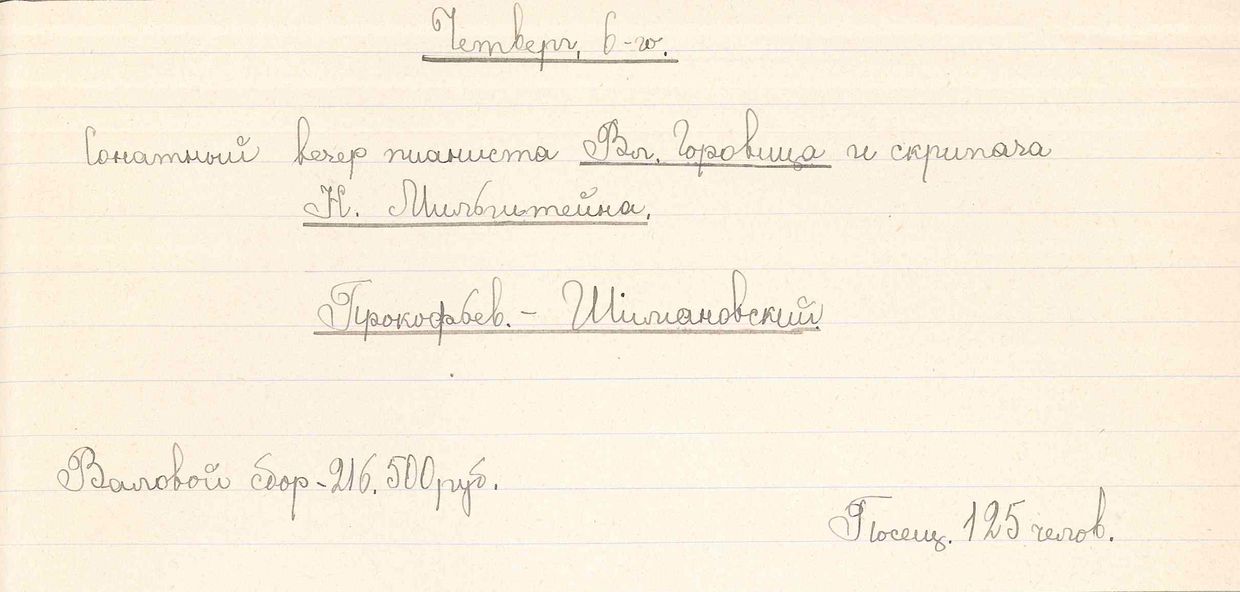 Четверг, 6-го.
Сонатный вечер пианиста Вл. Горовица и скрипача
Н. Мильштейна.
Прокофьев. - Шимановский.
Валовой сбор - 216.500 руб.
Посещ. 125 челов.